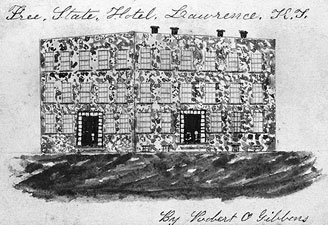 Free. State. Hotel. Lawrence. K.T.
By Robert O Gibbens